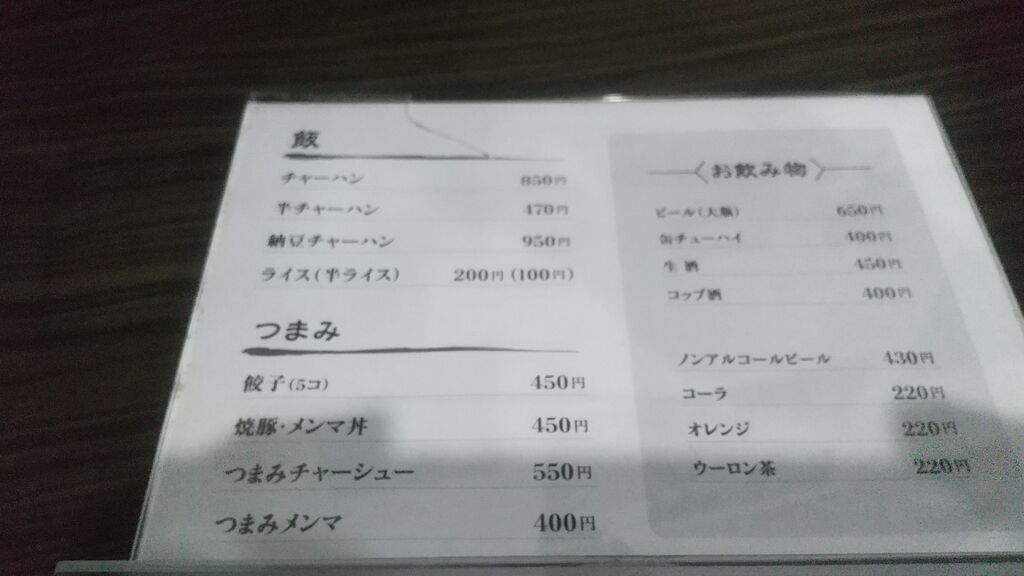 飯
チャーハン 850円
半チャーハン 470円
納豆チャーハン 950円
ライス(半ライス) 200円(100円)
つまみ
餃子(5コ) 450円
焼豚・メンマ丼 450円
つまみチャーシュー 550円
つまみメンマ 400円
お飲み物
ビール(大瓶) 650円
缶チューハイ 400円
生酒 450円
コップ酒 400円
ノンアルコールビール 430円
コーラ 220円
オレンジ 220円
ウーロン茶 220円